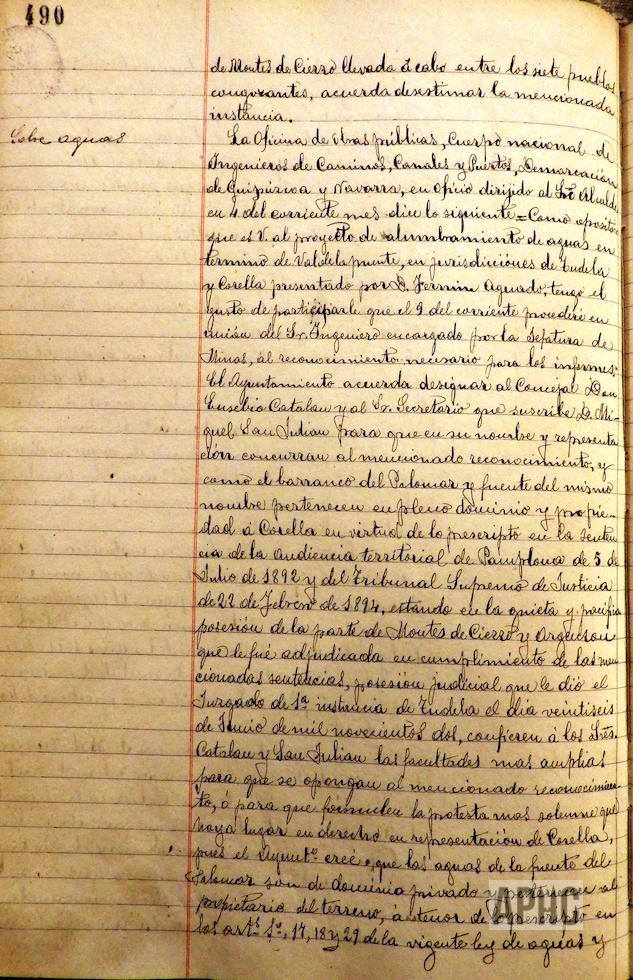 490
de Montes de Cierzo llevada á cabo entre los siete pueblos
congozantes, acuerda desestimar la mencionada
instancia.
Sobre aguas
La Oficina de Obras públicas, Cuerpo nacional de
Ingenieros de Caminos, Canales y Puertos, Demarcación
de Guipúzcoa y Navarra, en oficio dirijido al Sr. Alcalde
en 4 del corriente mes dice lo siguiente = Como opositor
que es V. al proyecto de alumbramiento de aguas en
termino de Valdelapuente, en jurisdicciónes de Tudela
y Corella presentado por D. Fermin Aguado, tengo el
gusto de participarle que el 9 del corriente procederé en
unión del Sr. Ingeniero encargado por la Jefatura de
Minas, al reconocimiento necesario para los informes.=
El Ayuntamiento acuerda designar al Concejal Don
Eusebio Catalan y al Sr. Secretario que suscribe D. Mi-
guel San Julian para que en su nombre y representa
ción concurran al mencionado reconocimiento, y
como el barranco del Palomar y fuente del mismo
nombre pertenecen en pleno dominio y propie-
dad á Corella en virtud de lo prescripto en la senten
cia de la Audiencia territorial de Pamplona de 5 de
Julio de 1892 y del Tribunal Supremo de Justicia
de 22 de Febrero de 1894, estando en la quieta y pacifica
posesión de la parte de Montes de Cierzo y Argenzon
que le fué adjudicada en cumplimiento de las men
cionadas sentencias, posesión judicial que le dió el
Juzgado de 1ª instancia de Tudela el dia veintiseis
de Junio de mil novecientos dos, confieren á los Sres.
Catalan y San Julian las facultades mas amplias
para que se opongan al mencionado reconocimien-
to, ó para que formulen la protesta mas solemne que
haya lugar en derecho en representación de Corella,
pues el Ayuntº. creé que las aguas de la fuente del
Palomar son de dominio privado y pertenecen al
propietario del terreno, á tenor de lo prescripto en
los artˢ. 17, 18 y 29 de la vigente ley de aguas y
APHC